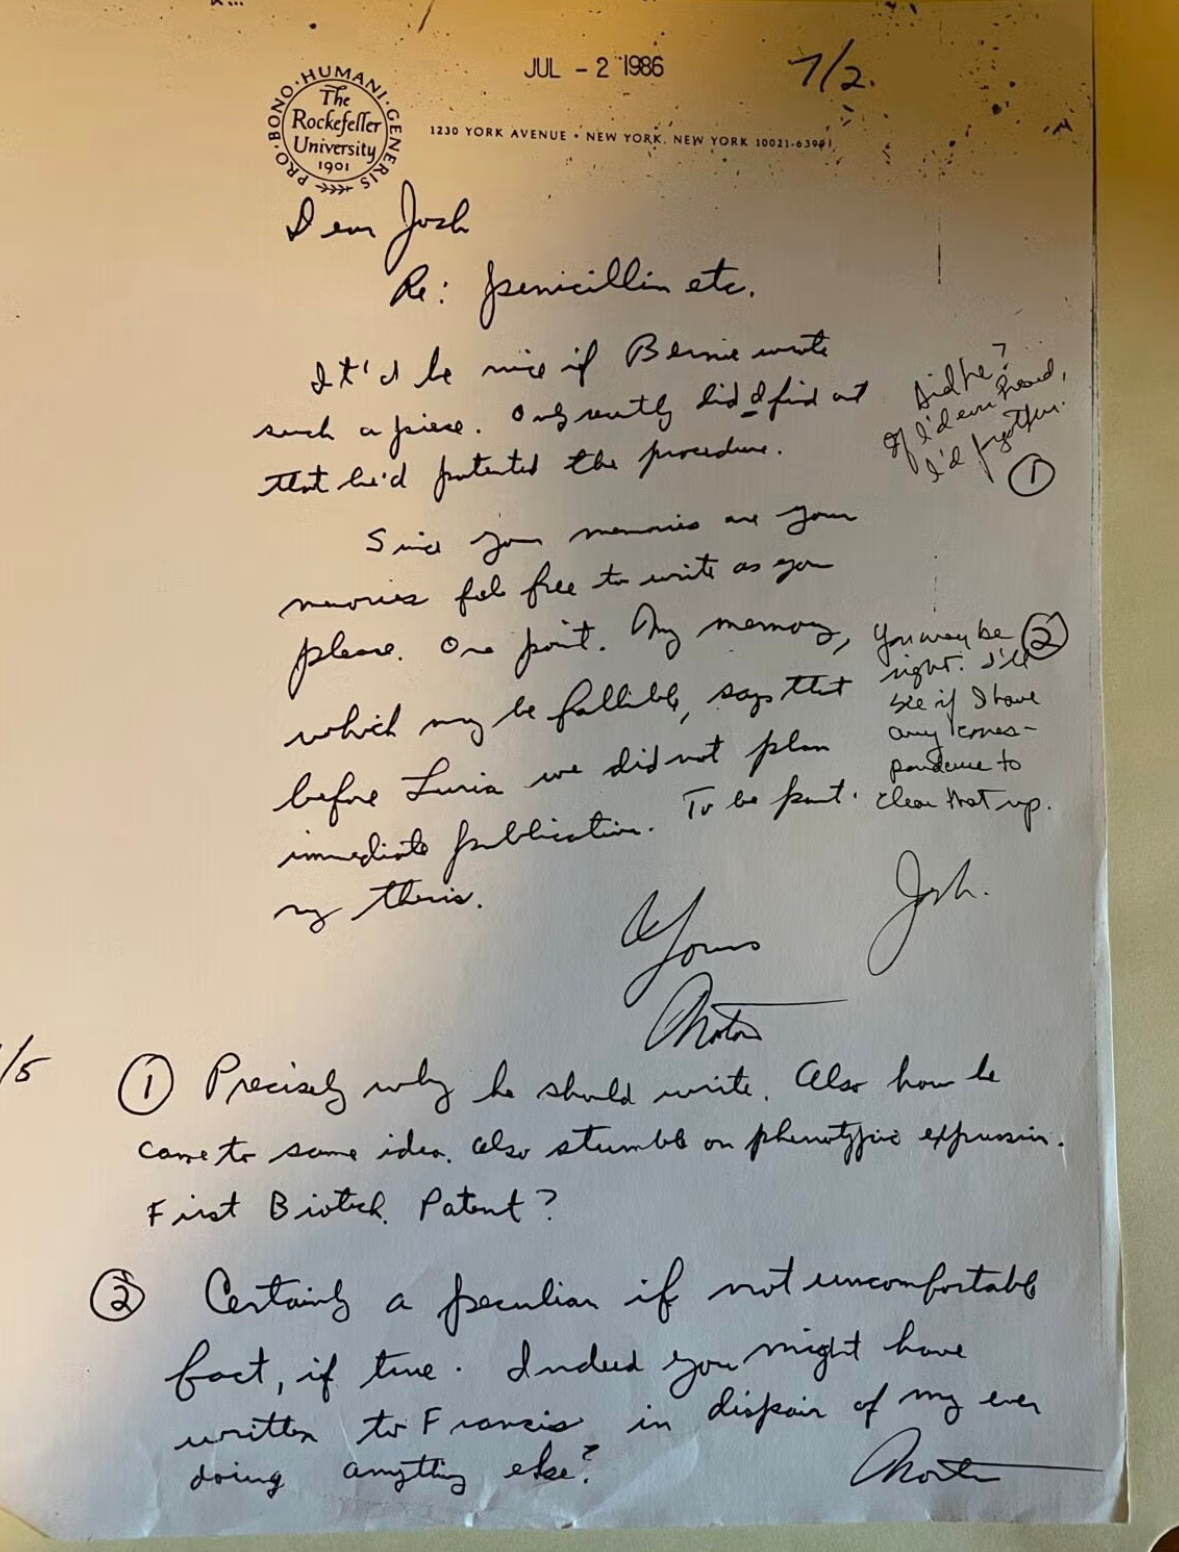 JUL - 2 1986
7/2.
PRO · BONO · HUMANI · GENERIS
The
Rockefeller
University
1901
1230 YORK AVENUE • NEW YORK, NEW YORK 10021-6399
Dear Josh
Re: penicillin etc.
It'd be nice if Bernie wrote
such a piece. Only recently did I find out
that he'd patented the procedure.
Did he?
If I'd ever heard,
I'd forgotten.
①
Since your memories are your
memories feel free to write as you
please. One point. My memory,
which may be fallible, says that
before Luria we did not plan
immediate publication. To be part.
my thesis.
You may be ②
right. I'll
see if I have
any corres-
pondence to
clear that up.
Josh.
Yours
Norton
/5
① Precisely why he should write. Also how he
came to same idea. Also stumble on phenotypic expression.
First Biotech. Patent?
② Certainly a peculiar if not uncomfortable
fact, if true. Indeed you might have
written to Francis in dispair of my ever
doing anything else?
Norton